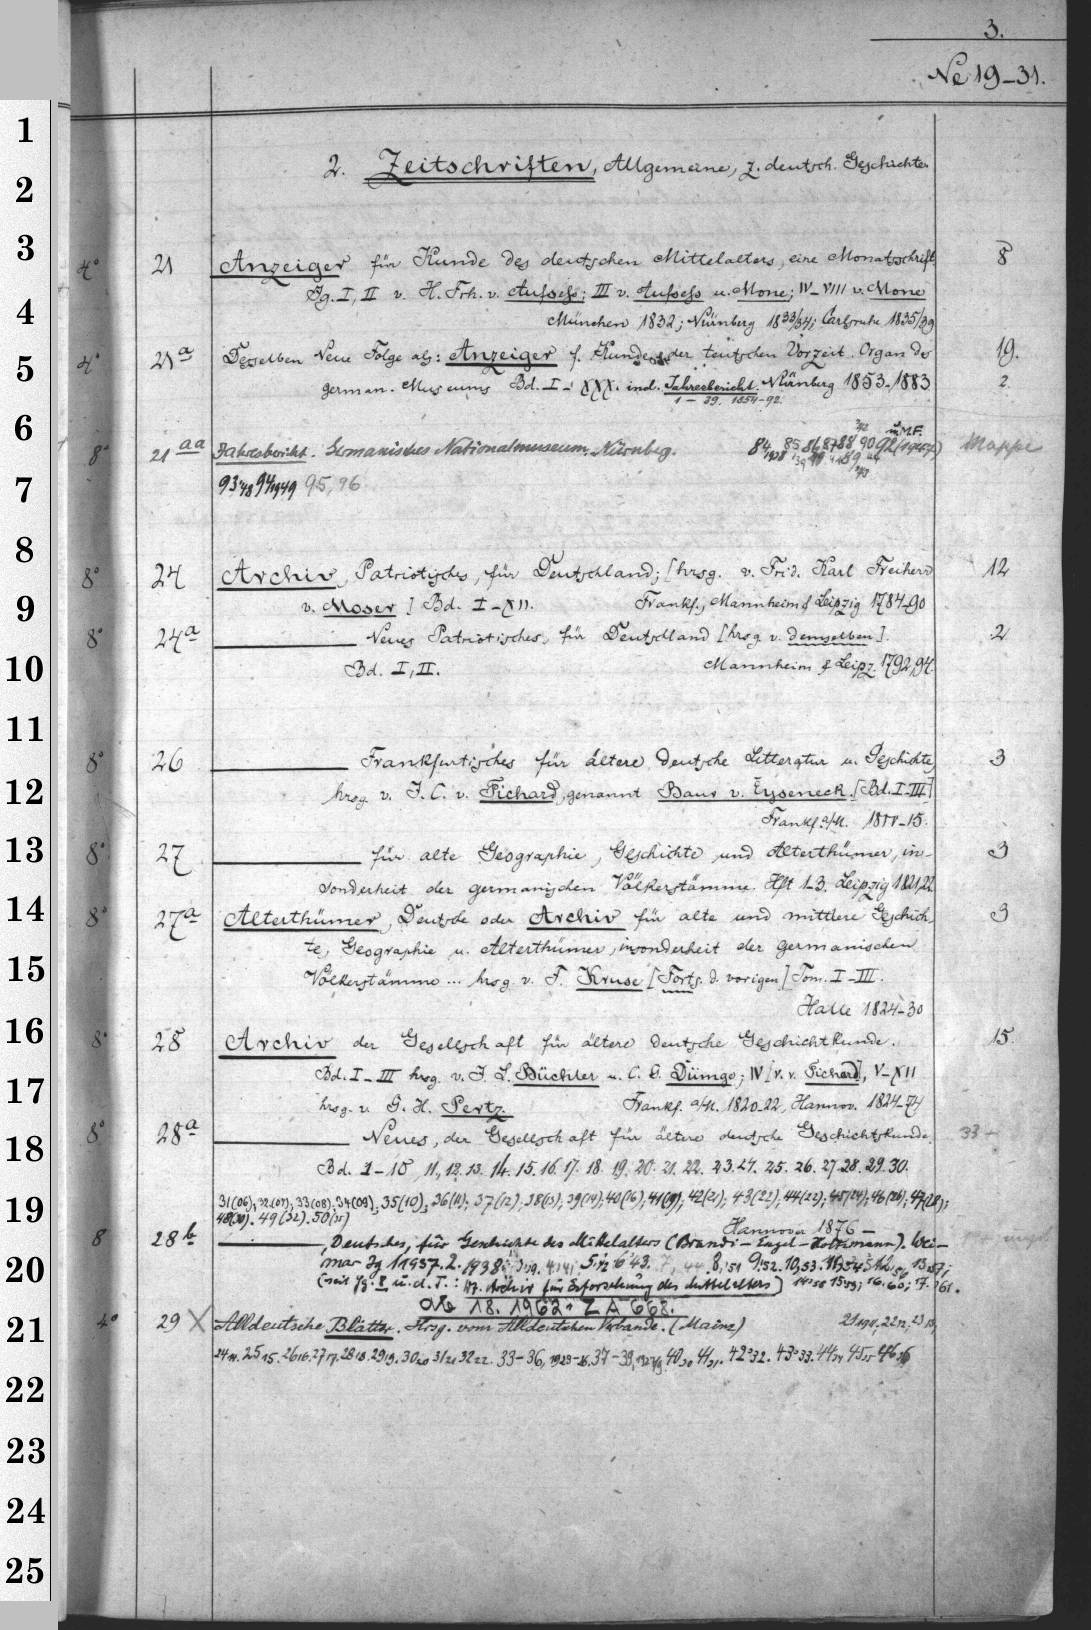 3.
Ne 19-31.
2. Zeitschriften, Allgemeine, z. deutsch. Geschichte.
4° 21 Anzeiger für Kunde des deutschen Mittelalters, eine Monatsschrift 8
Jg. I, II v. H. Frh. v. Aufsess; III v. Aufsess u. Mone; IV-VIII v. Mone
München 1832; Nürnberg 1833/34; Carlsruhe 1835/39
4° 21a Desselben Neue Folge als: Anzeiger f. Kunde der teutschen Vorzeit. Organ des 19.
german. Museums Bd. I-XXX. incl. Jahresbericht. Nürnberg 1853-1883 2.
1-39. 1854-92.
8° 21aa Jahresbericht. Germanisches Nationalmuseum. Nürnberg. Mappe
95, 96
8° 24 Archiv, Patriotisches, für Deutschland; [hrsg. v. Frid. Karl Freiherr 12
v. Moser] Bd. I-XII. Frankf., Mannheim & Leipzig 1784-90
8° 24a Neues Patriotisches, für Deutschland [hrsg. v. demselben]. 2
Bd. I, II. Mannheim & Leipz. 1792,94.
8° 26 Frankfurtisches für ältere deutsche Litteratur u. Geschichte 3
hrsg. v. J. C. v. Fichard, genannt Baur v. Eyseneck. [Bd. I-III]
Frankf. a/M. 1811-15.
8° 27 für alte Geographie, Geschichte und Alterthümer, in- 3
sonderheit der germanischen Völkerstämme. Hft 1-3. Leipzig 1821,22
8° 27a Alterthümer, Deutsche oder Archiv für alte und mittlere Geschich- 3
te, Geographie u. Alterthümer, insonderheit der germanischen
Völkerstämme ... hrsg. v. F. Kruse [Forts. d. vorigen] Tom. I-III.
Halle 1824-30
8° 28 Archiv der Gesellschaft für ältere deutsche Geschichtkunde. 15.
Bd. I-III hrsg. v. J. L. Büchler u. C. G. Dümge; IV [v. v. Fichard], V-XII
hrsg. v. G. H. Pertz. Frankf. a/M. 1820-22, Hannov. 1824-74
8° 28a Neues, der Gesellschaft für ältere deutsche Geschichtskunde. 33
Bd. 1-10, 11, 12. 13. 14. 15. 16. 17. 18. 19. 20. 21. 22. 23. 24. 25. 26. 27. 28. 29. 30.
31(06); 32(07); 33(08); 34(09); 35(10); 36(11); 37(12); 38(13); 39(14); 40(16); 41(19); 42(21); 43(22); 44(22); 45(24); 46(26); 47(28);
48(30). 49(32). 50(35)
Hannover 1876-
8 28b , Deutsches, für Geschichte des Mittelalters (Brandi-Engel-Holtzmann). Wei-
mar Jg 1 1937. 2. 1938
(seit Jg. 8 u. d. T.: D. Archiv für Erforschung des Mittelalters)
ab 18. 1962: Z A 668.
4° 29 X Alldeutsche Blätter. Hrsg. vom Alldeutschen Verbande. (Mainz)
24 14. 25 15. 26 16. 27 17. 28 18. 29 19. 30 20 31 21 32 22. 33-36, 1923-26. 37-39, 40 30 41 31. 42 32. 43 33. 44 34 45 35 46 36